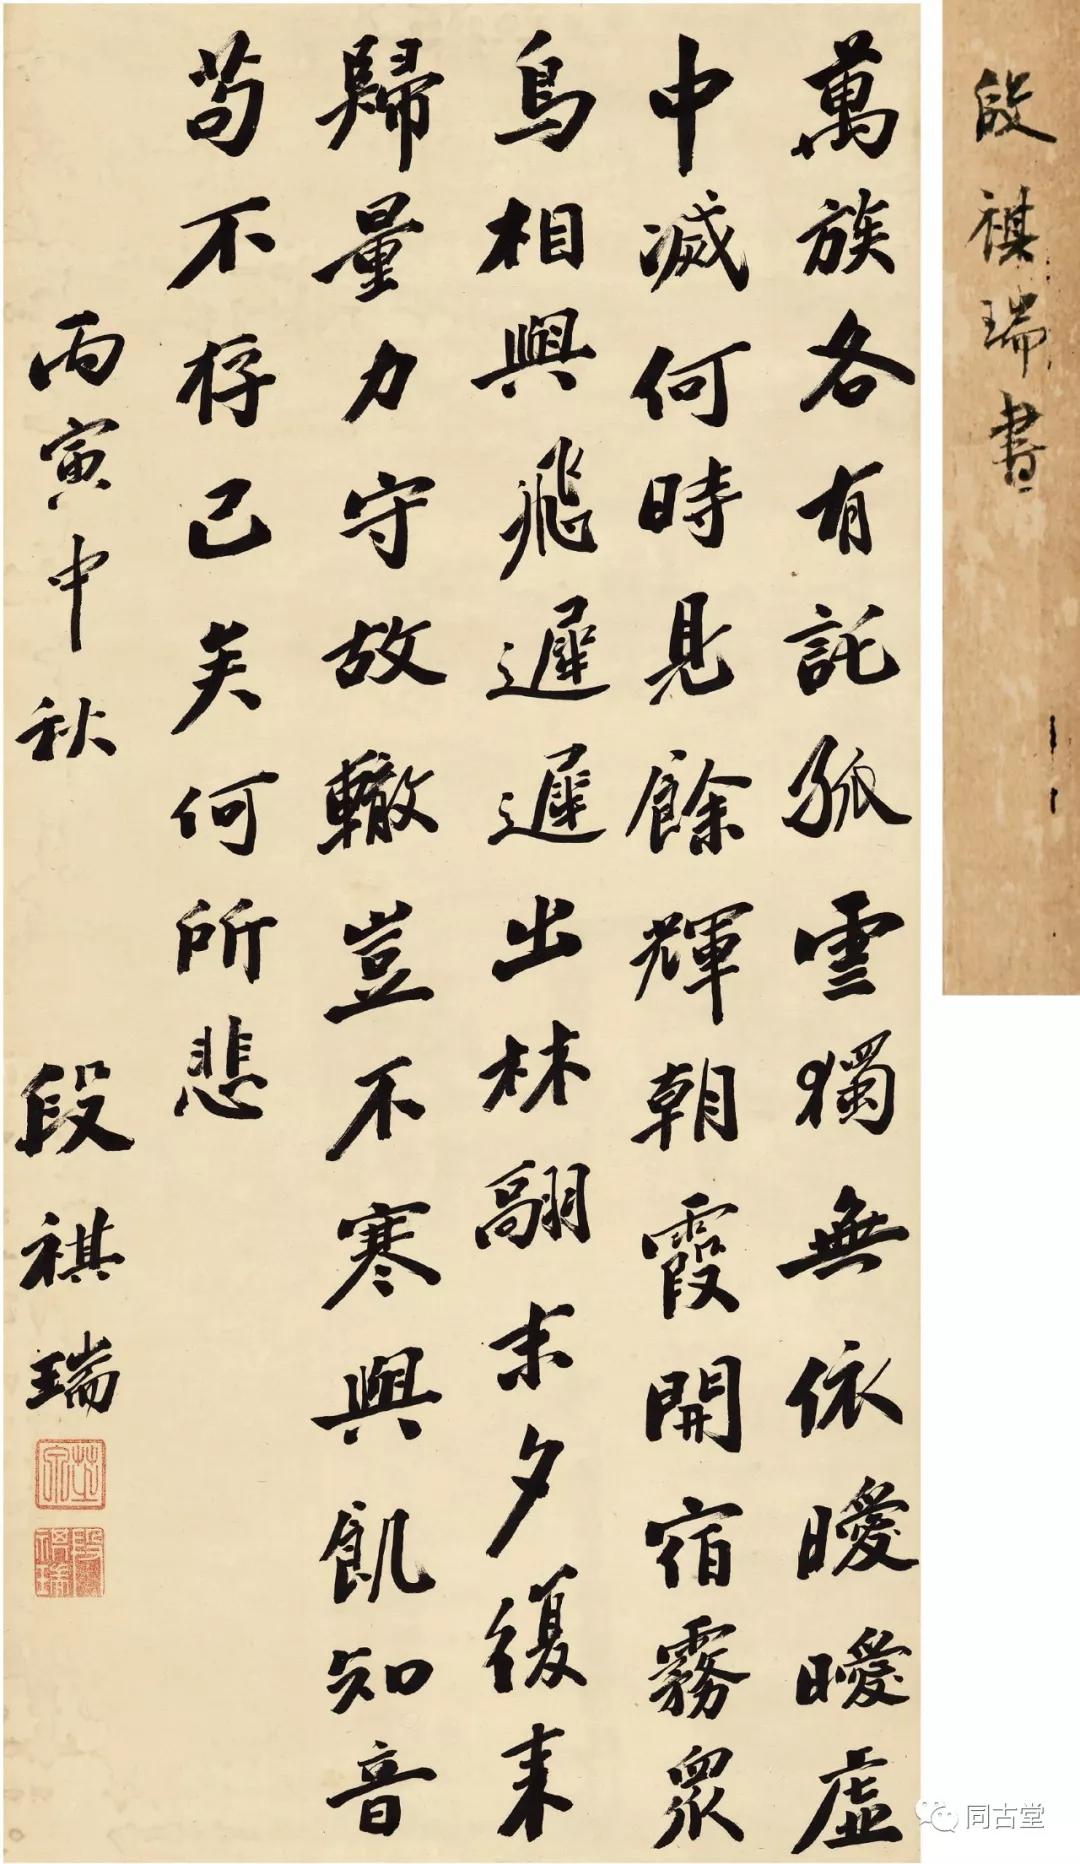 萬族各有託孤雲獨無依曖曖虛
中滅何時見餘輝朝霞開宿霧眾
鳥相與飛遲遲出林翮未夕復來
歸量力守故轍豈不寒與飢知音
苟不存已矣何所悲
丙寅中秋
段祺瑞
段祺瑞書
同古堂